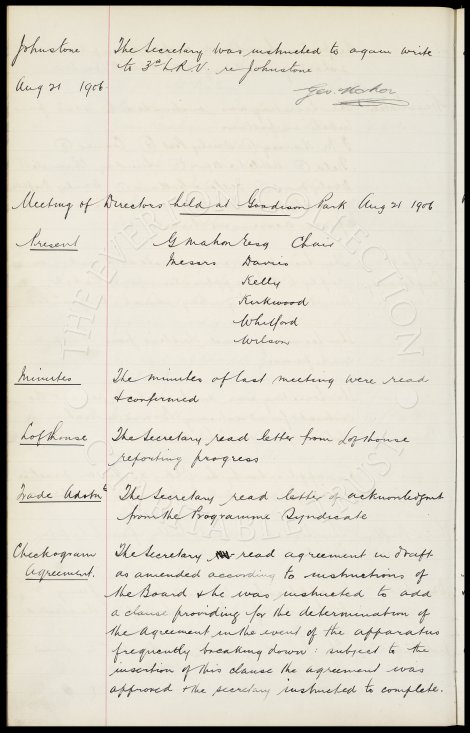 Johnstone The Secretary was instructed to again write
to 3rd L.R.V. re Johnstone
Aug 21 1906
Geo. Mahon
Meeting of Directors held at Goodison Park Aug 21 1906
Present G Mahon Esq Chair
Messrs Davies
Kelly
Kirkwood
Whitford
Wilson
Minutes The minutes of last meeting were read
& confirmed
Lofthouse The Secretary read letter from Lofthouse
reporting progress
Trade Advtmts The Secretary read letter of acknowledgmt
from the Programme Syndicate
Checkogram The Secretary read agreement in draft
Agreement. as amended according to instructions of
the Board & he was instructed to add
a clause providing for the determination of
the Agreement in the event of the apparatus
frequently breaking down: subject to the
insertion of this clause the agreement was
approved & the secretary instructed to complete.
THE EVERTON COLLECTION
CHARITABLE TRUST